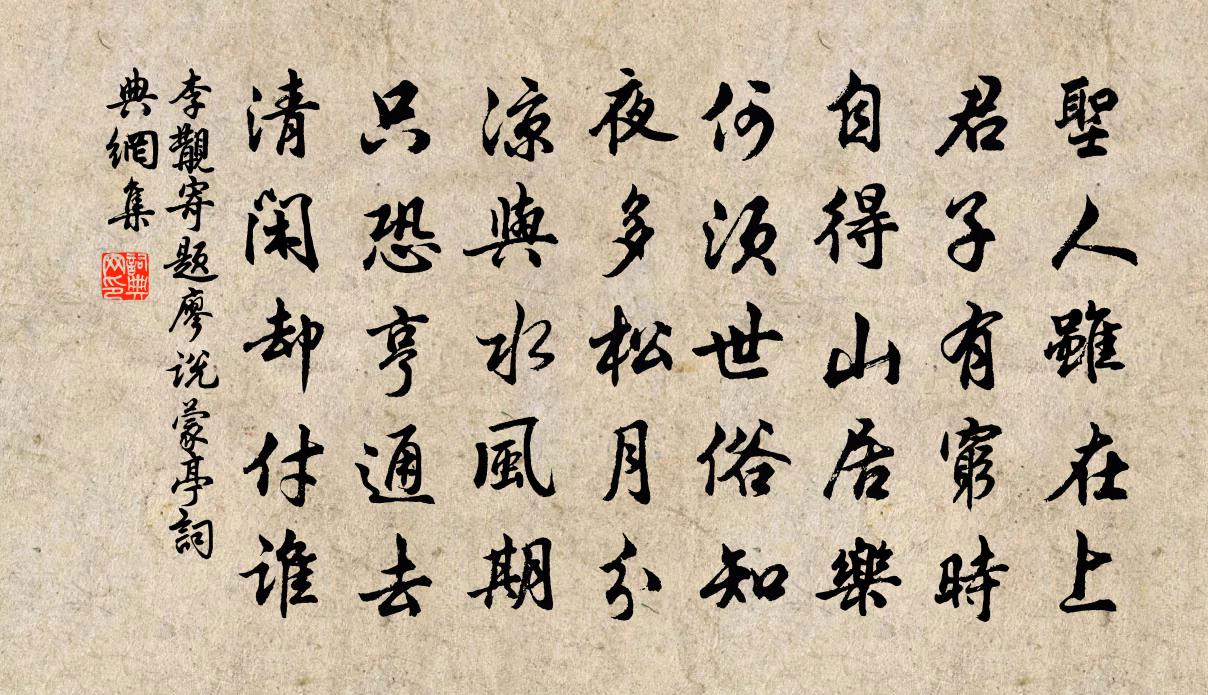 聖人雖在上
君子有窮時
自得山居樂
何須世俗知
夜多松月分
涼與水風期
只恐亨通去
清閑却付誰
李觀寄題廖說蒙亭詞
典網集
詞典
网印